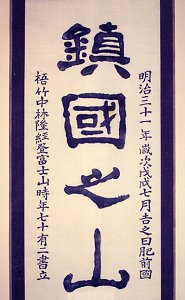 鎮國之山
明治三十一年歳次戊戌七月吉之日肥前國
梧竹中林隆経登富士山時年七十有二書立